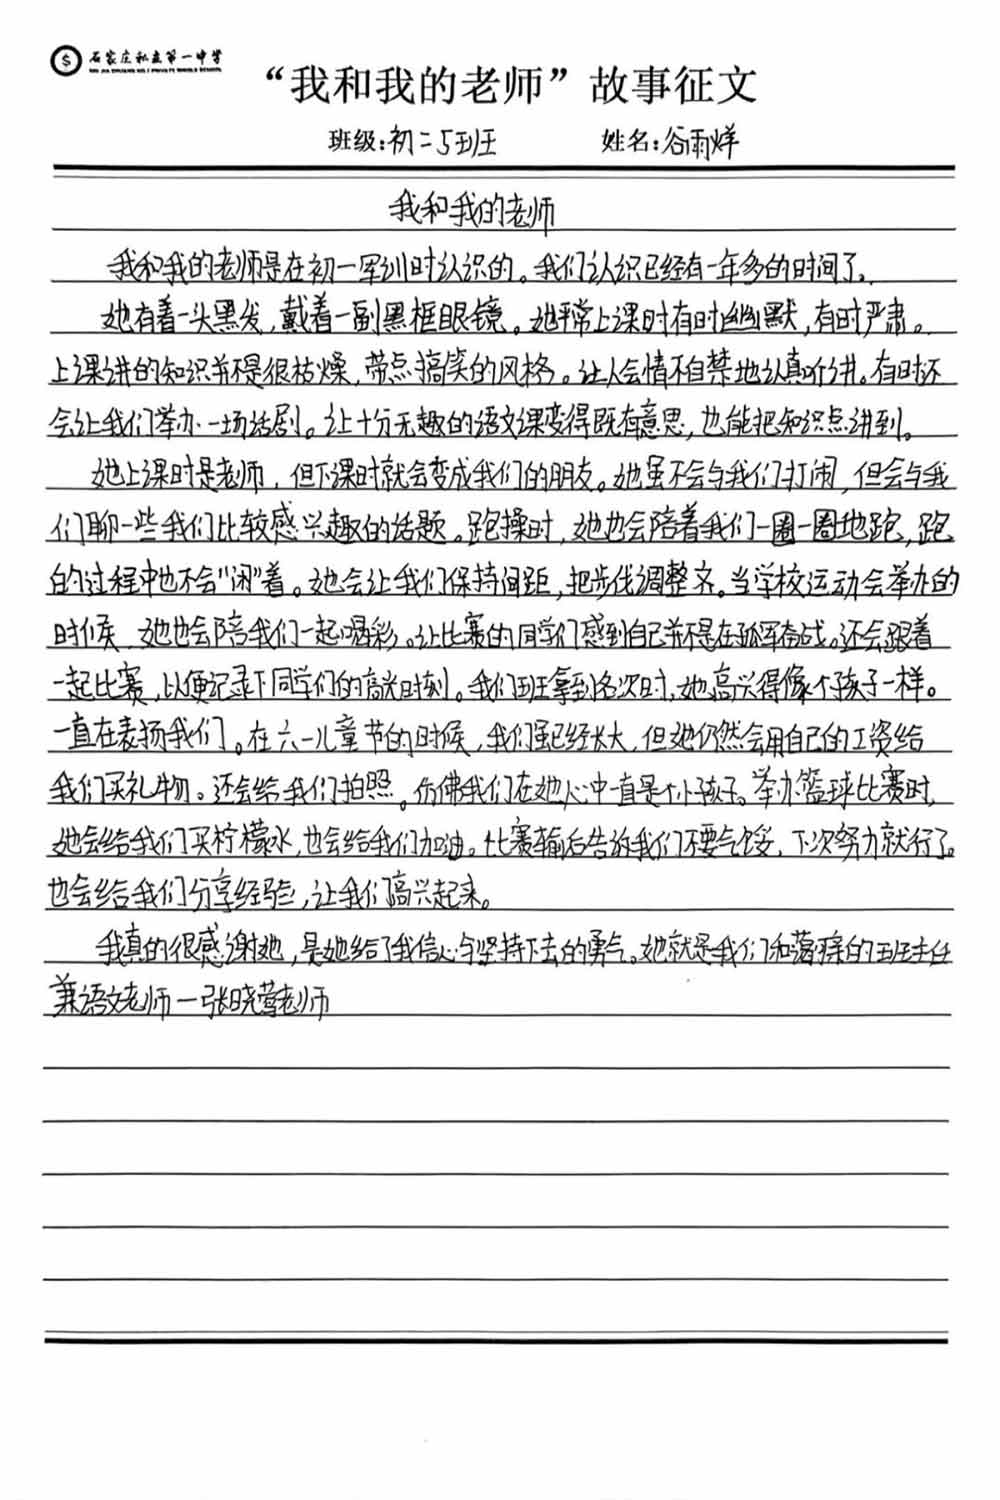 石家庄私立第一中学
SHI JIA ZHUANG NO.1 PRIVATE MIDDLE SCHOOL
“我和我的老师”故事征文
班级:初二5班 姓名:谷雨烊
我和我的老师
我和我的老师是在初一军训时认识的。我们认识已经有一年多的时间了。
她有着一头黑发,戴着一副黑框眼镜。她平常上课时有时幽默,有时严肃。
上课讲的知识并不是很枯燥,带点搞笑的风格。让人会情不自禁地认真听讲。有时还
会让我们举办一场话剧。让十分无趣的语文课变得既有意思,也能把知识点讲到。
她上课时是老师,但下课时就会变成我们的朋友。她虽不会与我们打闹,但会与我
们聊一些我们比较感兴趣的话题。跑操时,她也会陪着我们一圈一圈地跑,跑
的过程中也不会“闲”着。她会让我们保持间距,把步伐调整齐。当学校运动会举办的
时候,她也会陪我们一起喝彩。让比赛的同学们感到自己并不是在孤军奋战。还会跟着
一起比赛,以便记录下同学们的高光时刻。我们班拿到名次时,她高兴得像个孩子一样。
一直在表扬我们。在六一儿童节的时候,我们虽已经长大,但她仍然会用自己的工资给
我们买礼物。还会给我们拍照。仿佛我们在她心中一直是个小孩子。举办篮球比赛时,
她会给我们买柠檬水,也会给我们加油。比赛输后告诉我们不要气馁,下次努力就行了。
也会给我们分享经验,让我们高兴起来。
我真的很感谢她,是她给了我信心与坚持下去的勇气。她就是我们和蔼的班主任
兼语文老师—张晓莺老师